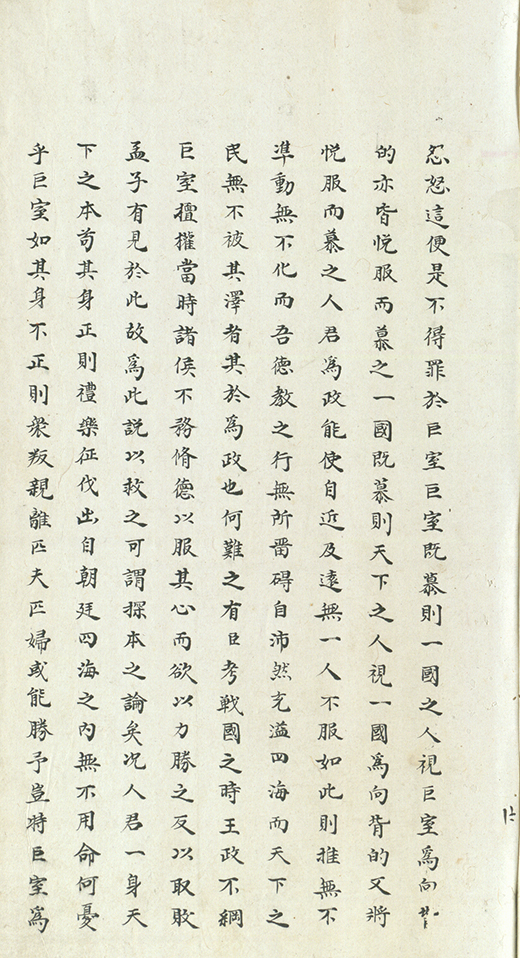 忿怒這便是不得罪於巨室巨室既慕則一國之人視巨室爲向
的亦皆悅服而慕之一國既慕則天下之人視一國爲向背的又將
悅服而慕之人君爲政能使自近及遠無一人不服如此則推無不
準動無不化而吾德教之行無所畱碍自沛然充溢四海而天下之
民無不被其澤者其於爲政也何難之有臣考戰國之時王政不綱
巨室擅權當時諸侯不務脩德以服其心而欲以力勝之反以取敗
孟子有見於此故爲此說以救之可謂探本之論矣况人君一身天
下之本苟其身正則禮樂征伐出自朝廷四海之內無不用命何憂
乎巨室如其身不正則衆叛親離匹夫匹婦或能勝予豈特巨室爲